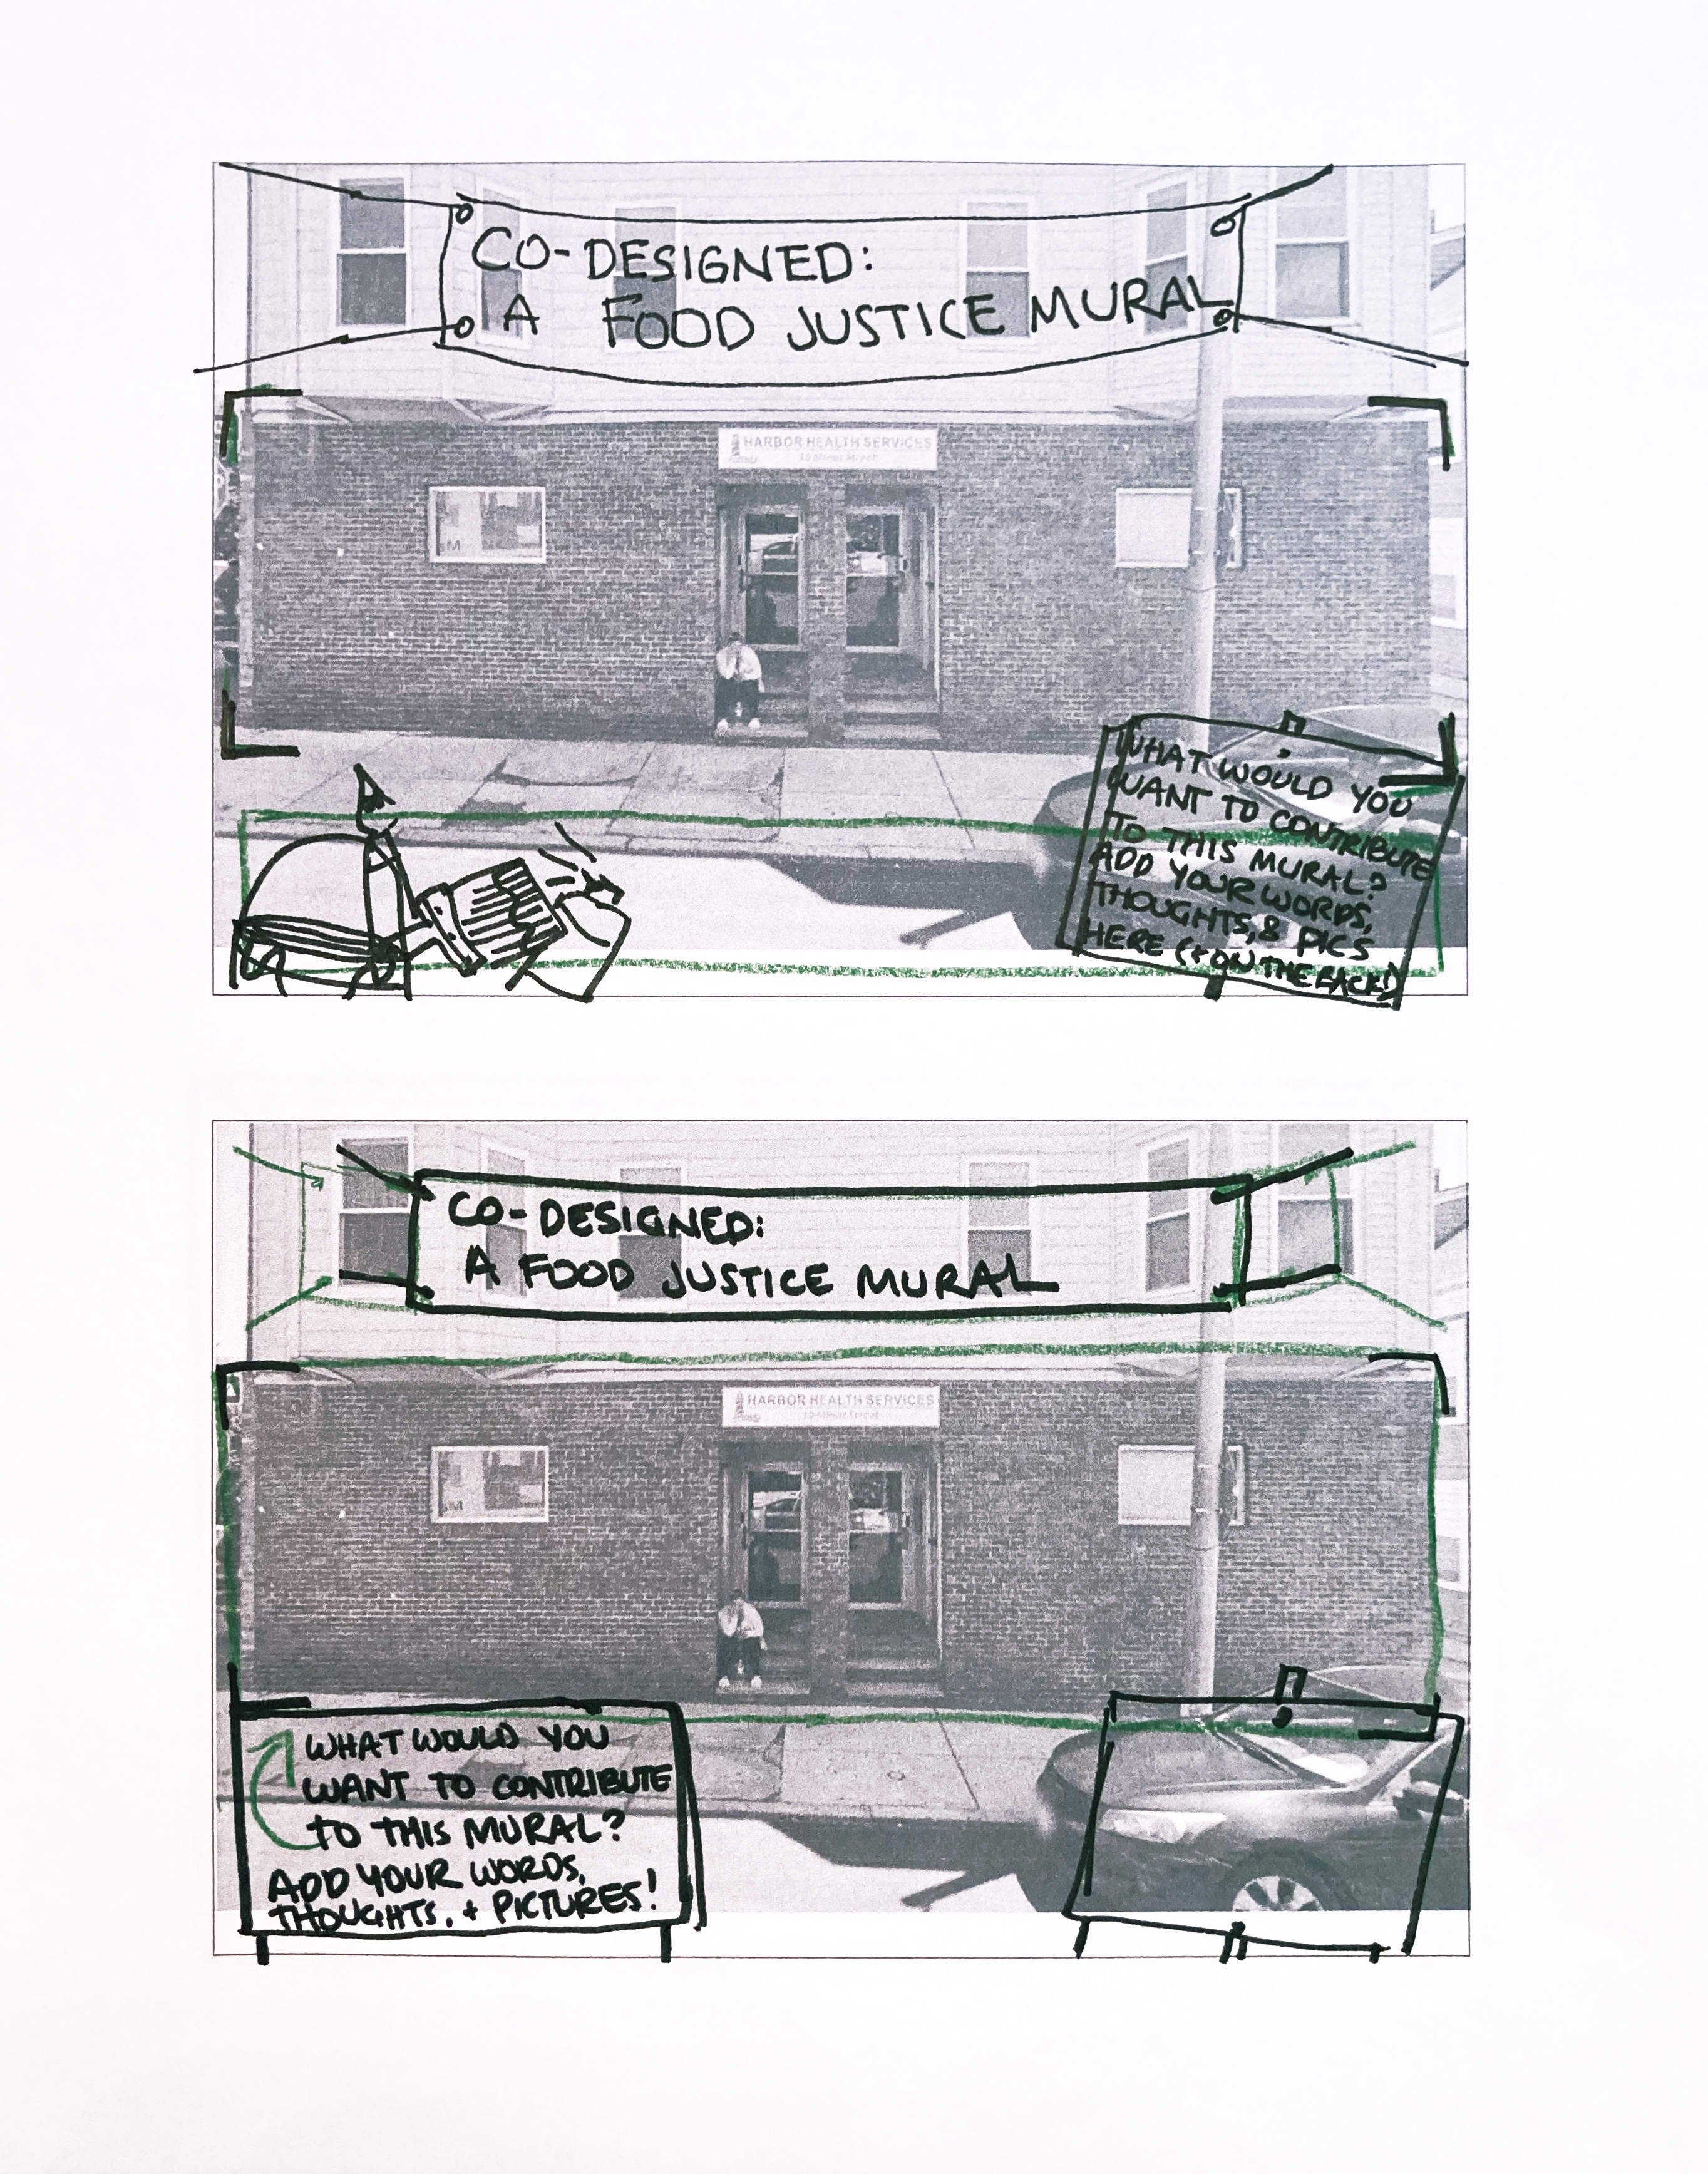 CO-DESIGNED:
A FOOD JUSTICE MURAL
HARBOR HEALTH SERVICES
Street
M
WHAT WOULD YOU
WANT TO CONTRIBUTE
TO THIS MURAL?
ADD YOUR WORDS,
THOUGHTS, & PICS
HERE (+ ON THE BACK!)
CO-DESIGNED:
A FOOD JUSTICE MURAL
HARBOR HEALTH SERVICES
Street
M
WHAT WOULD YOU
WANT TO CONTRIBUTE
TO THIS MURAL?
ADD YOUR WORDS,
THOUGHTS, + PICTURES!